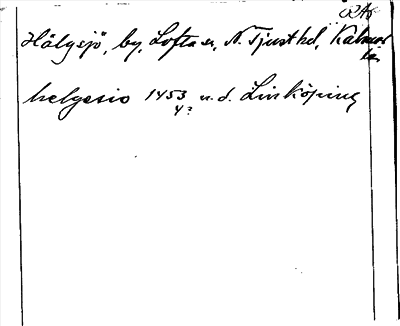 RA
Hälgsjö, by, Lofta sn, N. Tjust hd, Kalmar
län
helgesio 1453 u. d. Linköping
4?